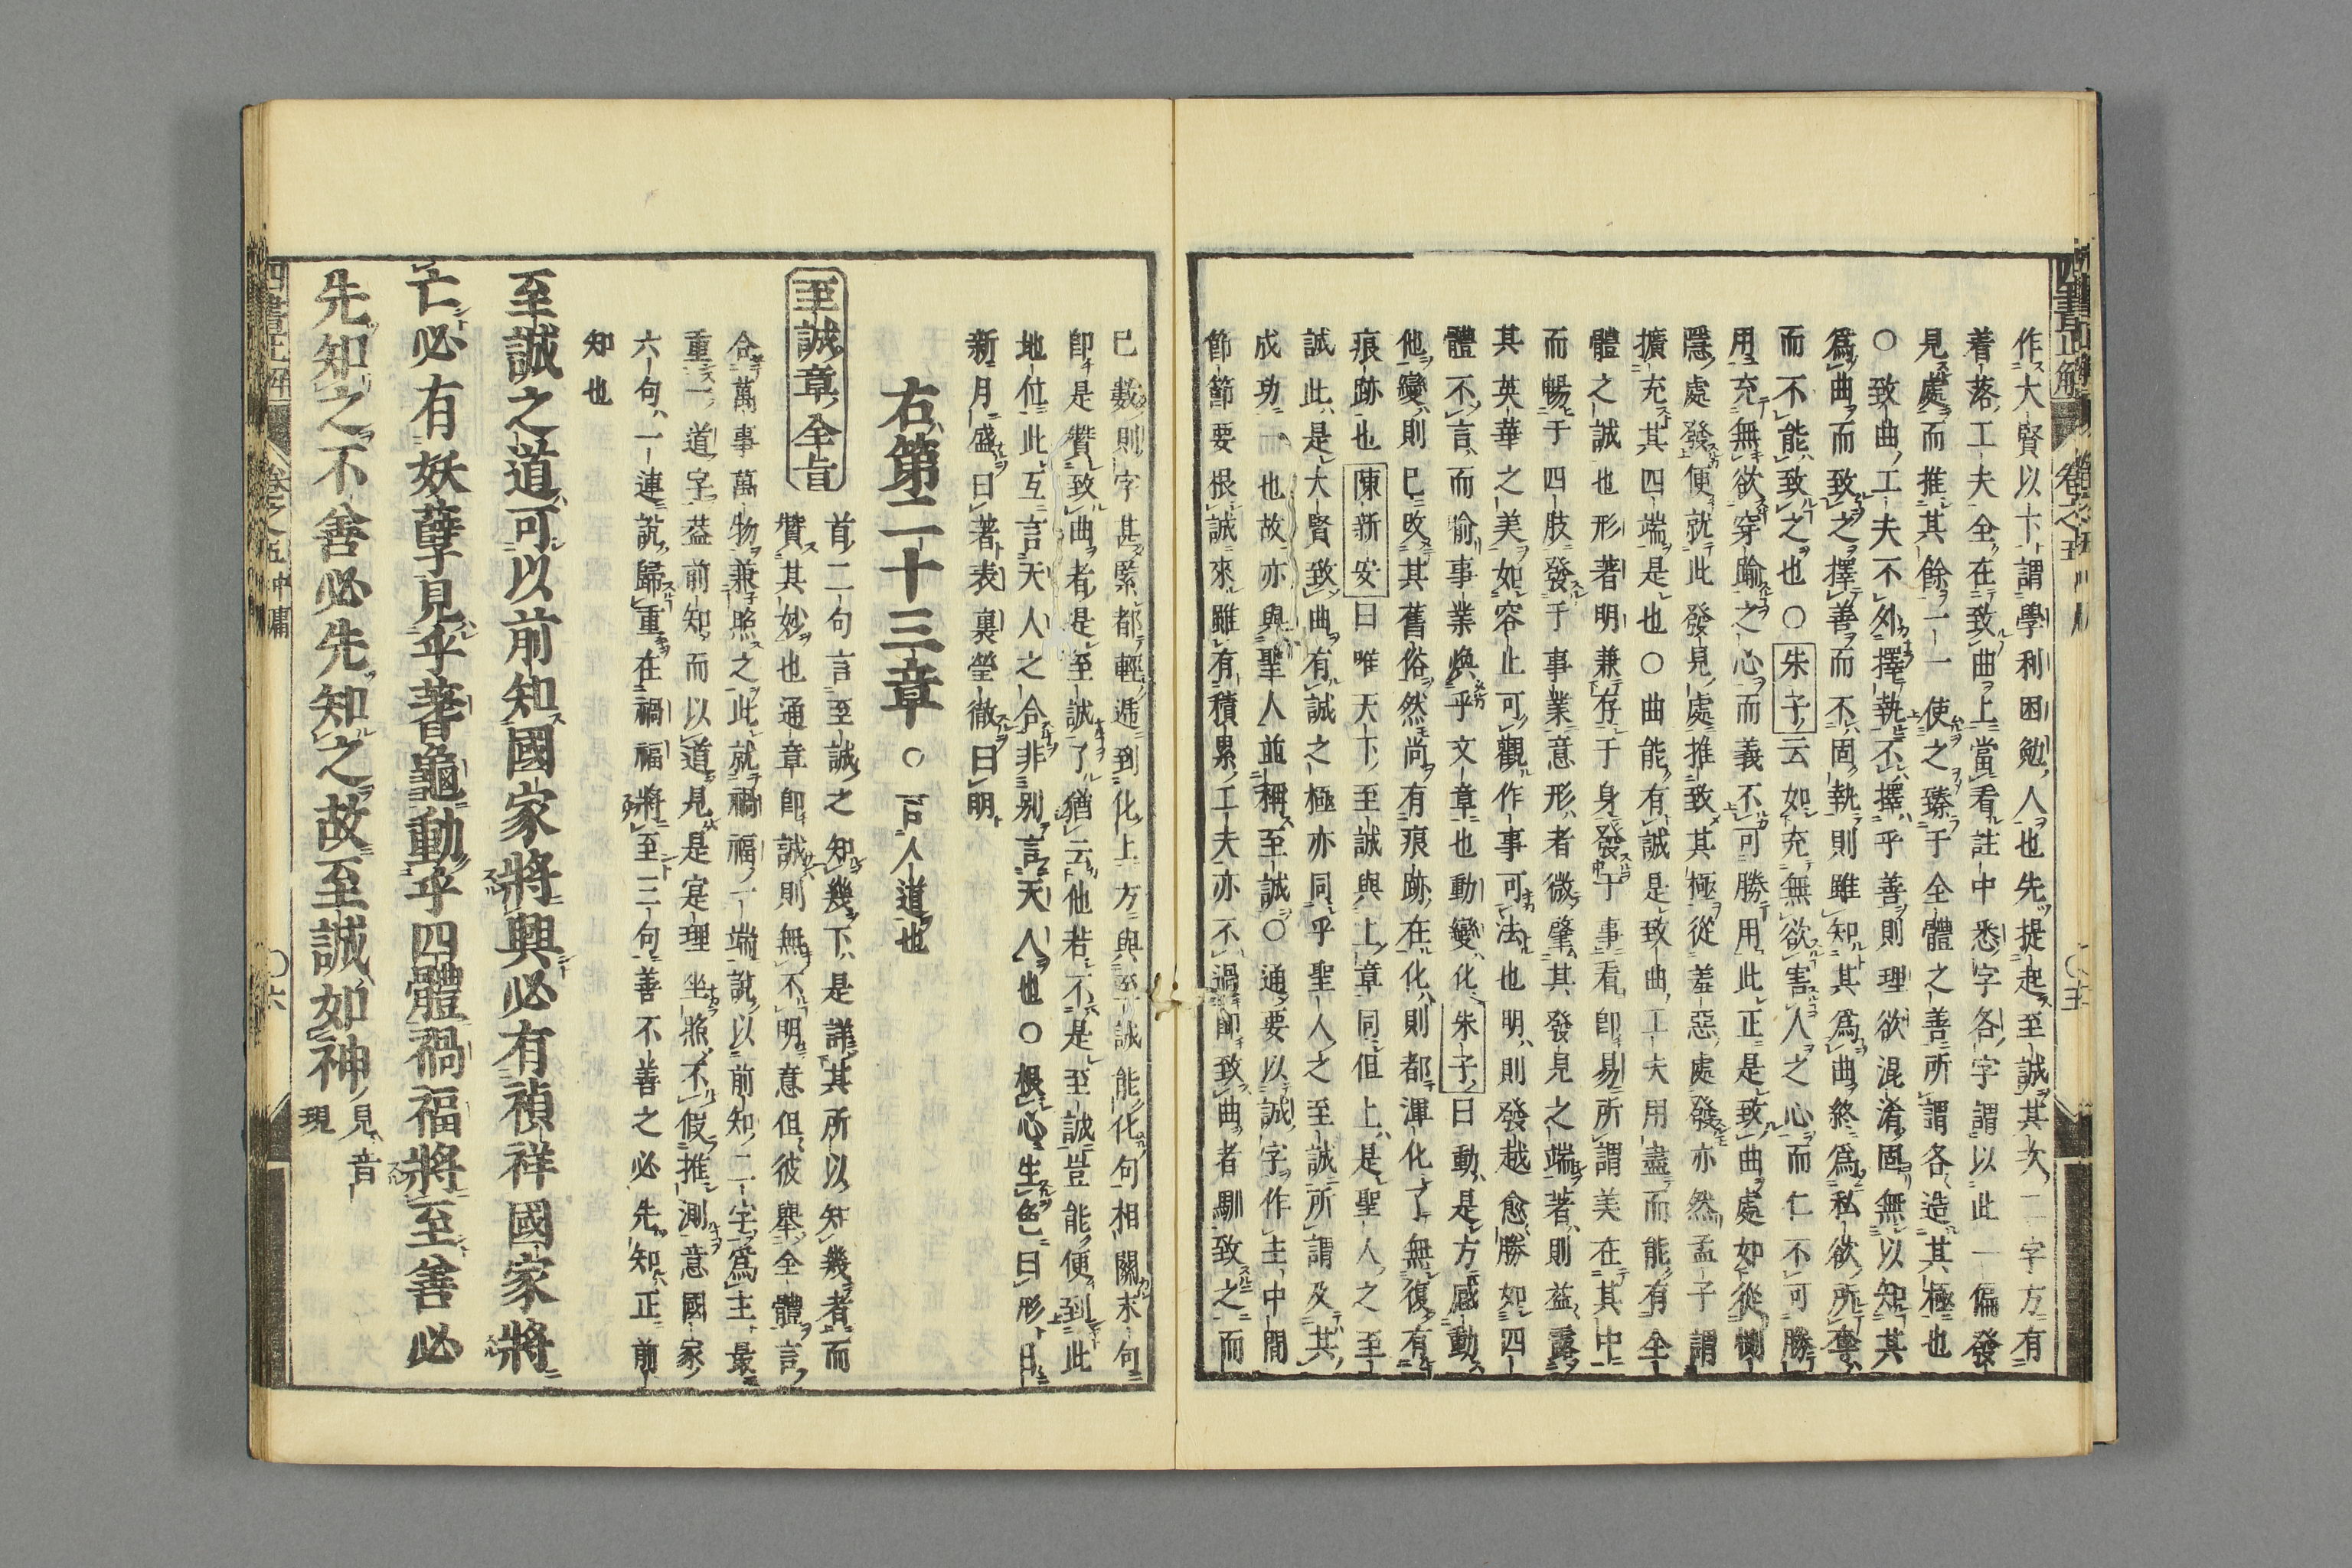 作大賢以下謂學利困勉人也先提起至誠其次二字方有
着落工夫全在致曲上當看註中悉字各字謂以此一偏發
見處而推其餘一一使之臻于全體之善所謂各造其極也
○致曲工夫不外擇執不擇乎善則理欲混淆固無以知其
爲曲而致之擇善而不固執則雖知其爲曲終爲私欲所奪
而不能致之也○朱子云如充無欲害人之心而仁不可勝
用充無欲穿踰之心而義不可勝用此正是致曲處如從惻
隱處發便就此發見處推致其極從羞惡處發亦然孟子謂
擴充其四端是也○曲能有誠是致曲工夫用盡而能有全
體之誠也形著明兼存于身發于事看卽易所謂美在其中
而暢于四肢發于事業意形者微肇其發見之端著則益露
其英華之美如容止可觀作事可法也明則發越愈勝如四
體不言而喻事業煥乎文章也動變化朱子曰動是方感動
他變則已改其舊俗然尚有痕跡在化則都渾化了無復有
痕跡也陳新安曰唯天下至誠與上章同但上是聖人之至
誠此是大賢致曲有誠之極亦同乎聖人之至誠所謂及其
成功一也故亦與聖人並稱至誠○通要以誠字作主中間
節節要根誠來雖有積累工夫亦不過卽致曲者馴致之而
已數則字甚緊都輕遞到化上方與至誠能化句相關末句
卽是贊致曲者是至誠了猶云他若不是至誠豈能便到此
地位此互言天人之合非別言天人也○根心生色曰形日
新月盛曰著表裏瑩徹曰明
右第二十三章○言人道也
至誠章全旨
首二句言至誠之知幾下是詳其所以知幾者而
贊其妙也通章卽誠則無不明意但彼舉全體言
合萬事萬物兼照之此就禍福一端說以前知二字爲主最
重一道字蓋前知而以道見是寔理坐照不假推測意國家
六句一連說歸重在禍福將至三句善不善之必先知正前
知也
至誠之道可以前知國家將興必有禎祥國家將
亡必有妖孽見乎蓍龜動乎四體禍福將至善必
先知之不善必先知之故至誠如神見音現
四書正解 卷之五 中庸 ○六